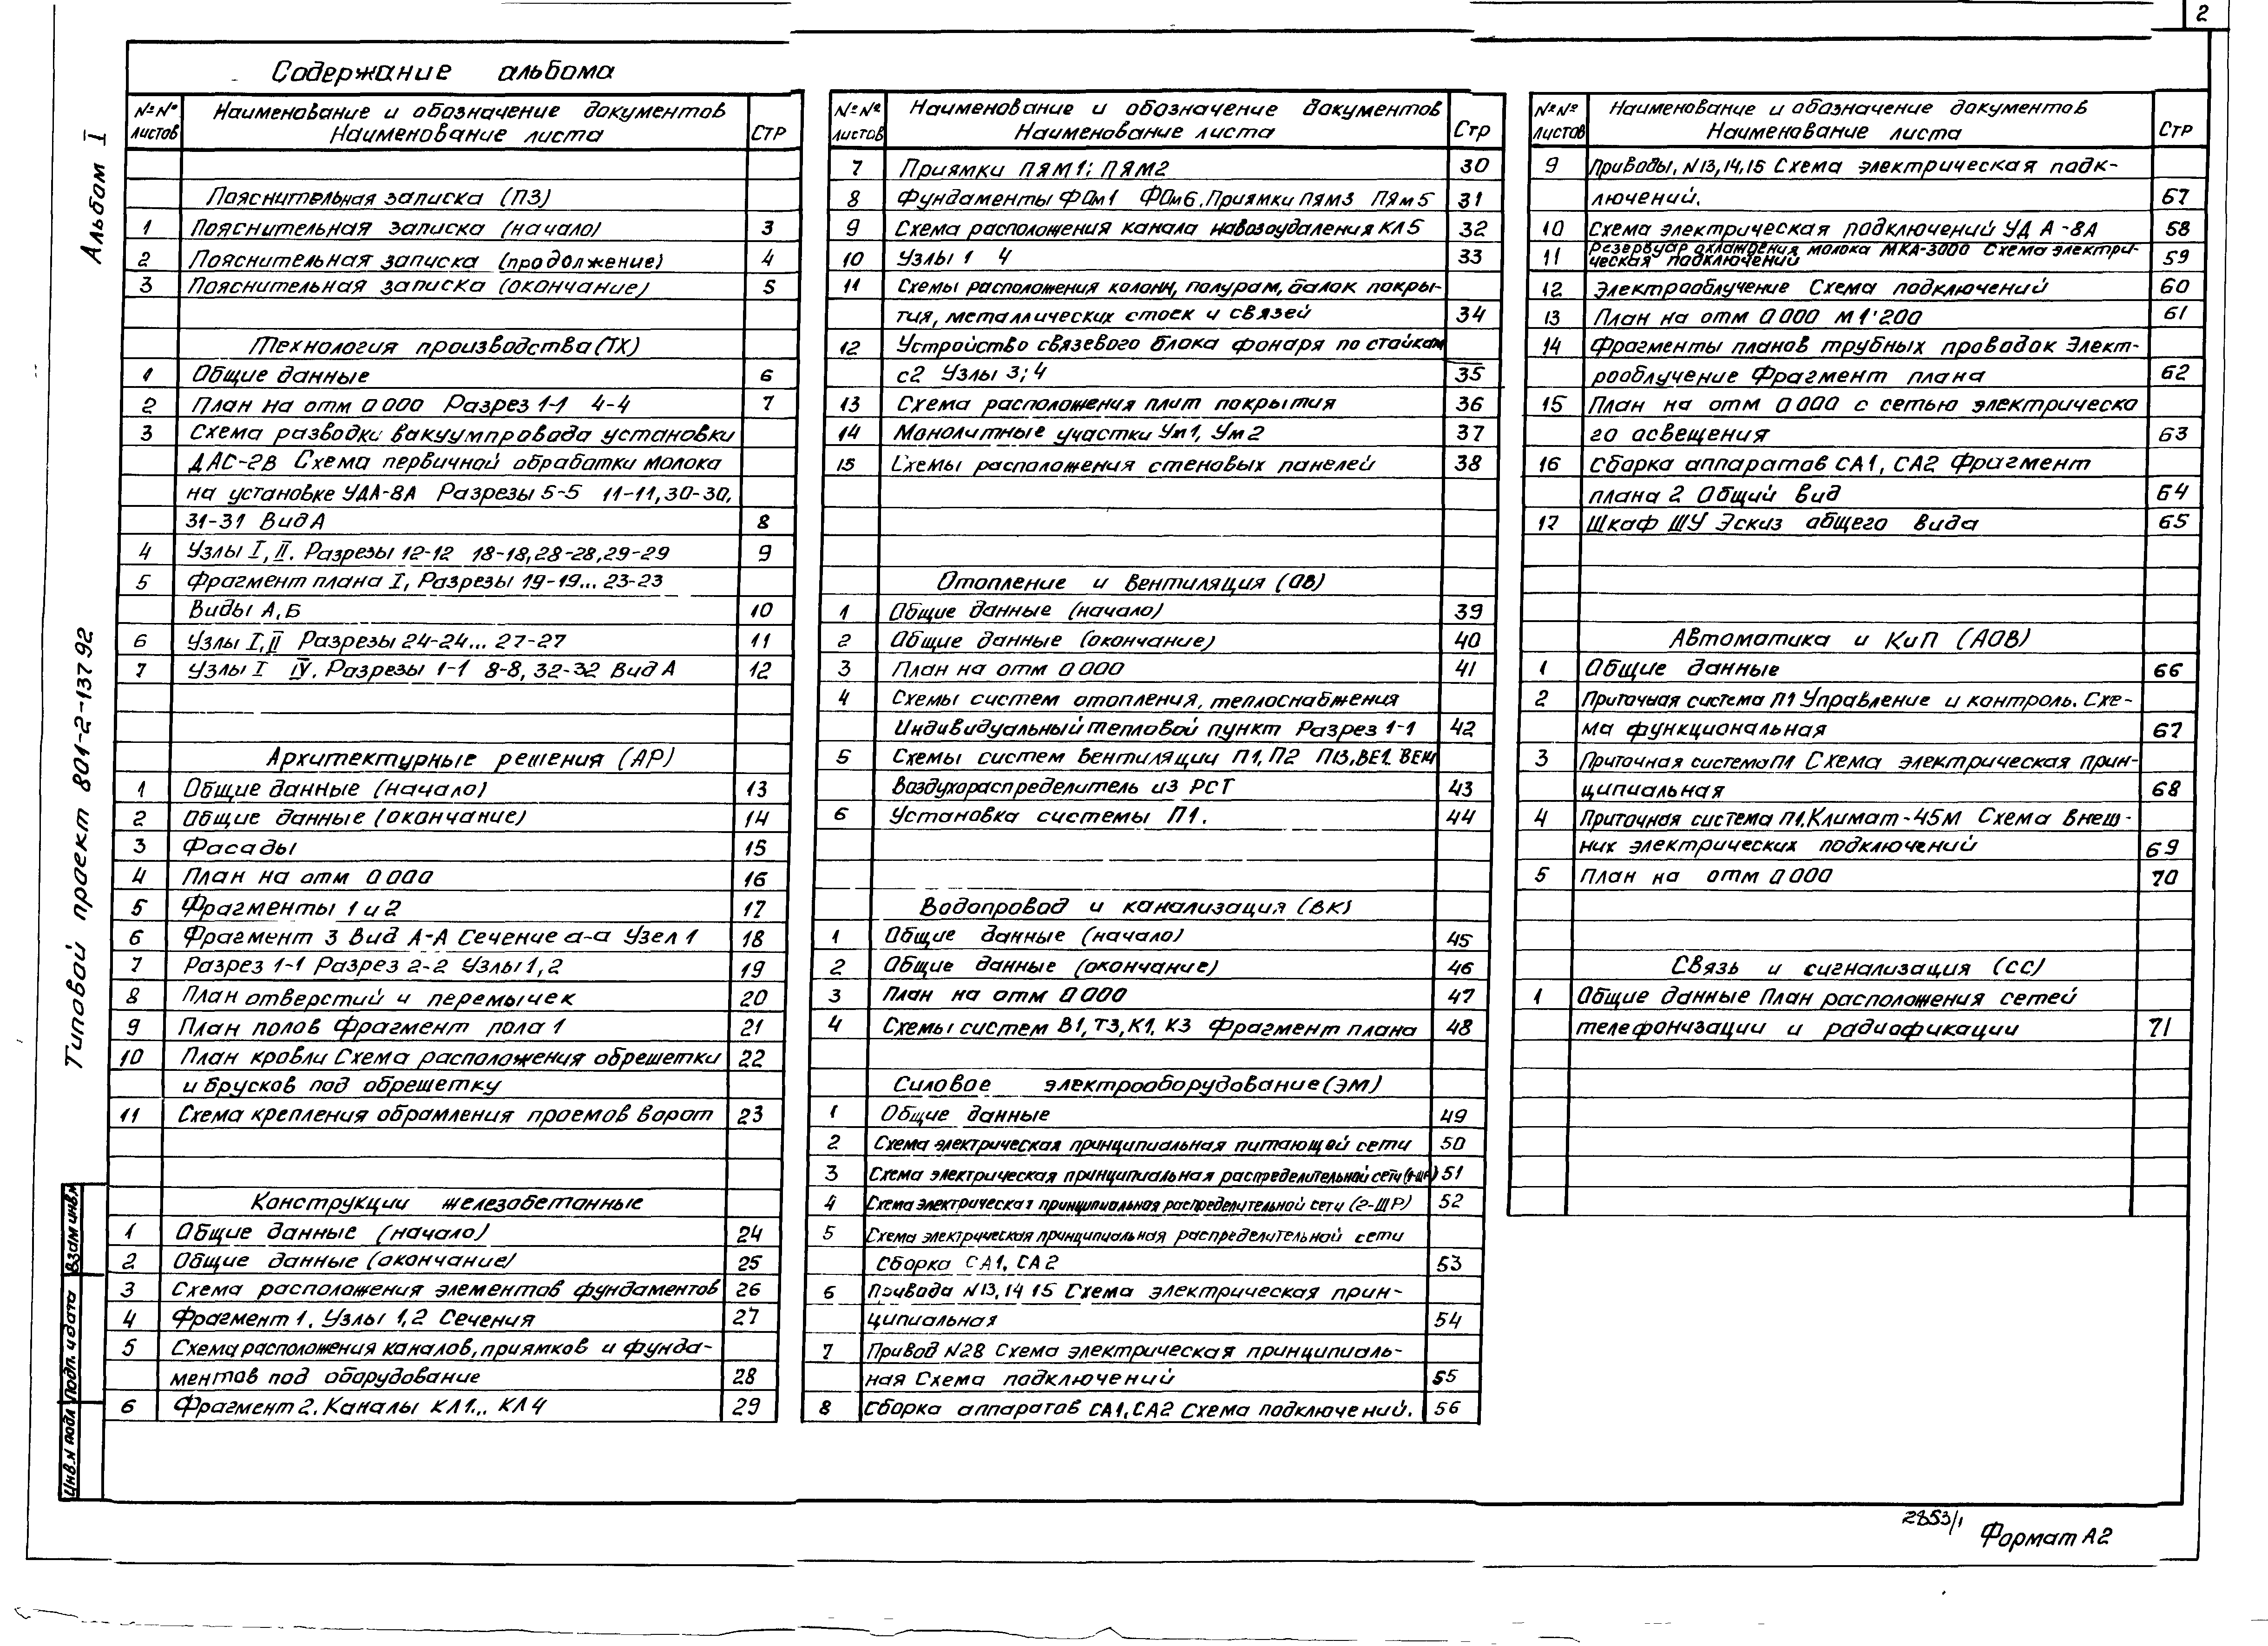 2
Содержание альбома
Альбом I
Типовой проект 801-2-137 92
№№ листов Наименование и обозначение документов Наименование листа Стр
Пояснительная записка (ПЗ)
1 Пояснительная записка (начало) 3
2 Пояснительная записка (продолжение) 4
3 Пояснительная записка (окончание) 5
Технология производства (ТХ)
1 Общие данные 6
2 План на отм 0 000 Разрез 1-1 4-4 7
3 Схема разводки вакуумпровода установки
ДАС-2В Схема первичной обработки молока
на установке УДА-8А Разрезы 5-5 11-11, 30-30,
31-31 Вид А 8
4 Узлы I, II. Разрезы 12-12 18-18, 28-28, 29-29 9
5 Фрагмент плана I, Разрезы 19-19... 23-23
Виды А, Б 10
6 Узлы I, II Разрезы 24-24... 27-27 11
7 Узлы I IV. Разрезы 1-1 8-8, 32-32 Вид А 12
Архитектурные решения (АР)
1 Общие данные (начало) 13
2 Общие данные (окончание) 14
3 Фасады 15
4 План на отм 0 000 16
5 Фрагменты 1 и 2 17
6 Фрагмент 3 Вид А-А Сечение а-а Узел 1 18
7 Разрез 1-1 Разрез 2-2 Узлы 1, 2 19
8 План отверстий и перемычек 20
9 План полов Фрагмент пола 1 21
10 План кровли Схема расположения обрешетки 22
и брусков под обрешетку
11 Схема крепления обрамления проемов ворот 23
Конструкции железобетонные
1 Общие данные (начало) 24
2 Общие данные (окончание) 25
3 Схема расположения элементов фундаментов 26
4 Фрагмент 1. Узлы 1, 2 Сечения 27
5 Схема расположения каналов, приямков и фунда-
ментов под оборудование 28
6 Фрагмент 2. Каналы КЛ1... КЛ4 29
№№ листов Наименование и обозначение документов Наименование листа Стр
7 Приямки ПЯМ1; ПЯМ2 30
8 Фундаменты ФОм1 ФОм6. Приямки ПЯм3 ПЯм5 31
9 Схема расположения канала навозоудаления КЛ5 32
10 Узлы 1 4 33
11 Схемы расположения колонн, полурам, балок покры-
тия, металлических стоек и связей 34
12 Устройство связевого блока фонаря по стойкам
с2 Узлы 3; 4 35
13 Схема расположения плит покрытия 36
14 Монолитные участки Ум1, Ум2 37
15 Схемы расположения стеновых панелей 38
Отопление и вентиляция (ОВ)
1 Общие данные (начало) 39
2 Общие данные (окончание) 40
3 План на отм 0 000 41
4 Схемы систем отопления, теплоснабжения
Индивидуальный тепловой пункт Разрез 1-1 42
5 Схемы систем вентиляции П1, П2 П13, ВЕ1.
Воздухораспределитель из РСТ 43
6 Установка системы П1. 44
Водопровод и канализация (ВК)
1 Общие данные (начало) 45
2 Общие данные (окончание) 46
3 План на отм 0 000 47
4 Схемы систем В1, Т3, К1, К3 Фрагмент плана 48
Силовое электрооборудование (ЭМ)
1 Общие данные 49
2 Схема электрическая принципиальная питающей сети 50
3 Схема электрическая принципиальная распределительной сети (1-ШР) 51
4 Схема электрическая принципиальная распределительной сети (2-ШР) 52
5 Схема электрическая принципиальная распределительной сети
Сборка СА1, СА2 53
6 Привода N13, 14 15 Схема электрическая прин-
ципиальная 54
7 Привод N28 Схема электрическая принципиаль-
ная Схема подключений 55
8 Сборка аппаратов СА1, СА2 Схема подключений. 56
№№ листов Наименование и обозначение документов Наименование листа Стр
9 Приводы, N13, 14, 15 Схема электрическая подк-
лючений. 57
10 Схема электрическая подключений УДА-8А 58
11 Резервуар охлаждения молока МКА-3000 Схема электри-
ческая подключений 59
12 Электрооблучение Схема подключений 60
13 План на отм 0 000 М 1:200 61
14 Фрагменты планов трубных проводок Элект-
рооблучение Фрагмент плана 62
15 План на отм 0 000 с сетью электрическо
го освещения 63
16 Сборка аппаратов СА1, СА2 Фрагмент
плана 2 Общий вид 64
17 Шкаф ШУ Эскиз общего вида 65
Автоматика и КиП (АОВ)
1 Общие данные 66
2 Приточная система П1 Управление и контроль. Схе-
ма функциональная 67
3 Приточная система П1 Схема электрическая прин-
ципиальная 68
4 Приточная система П1. Климат-45М Схема внеш-
них электрических подключений 69
5 План на отм 0 000 70
Связь и сигнализация (СС)
1 Общие данные План расположения сетей
телефонизации и радиофикации 71
Взам инв.N
Подп. и дата
Инв.N подл
2853/1
Формат А2